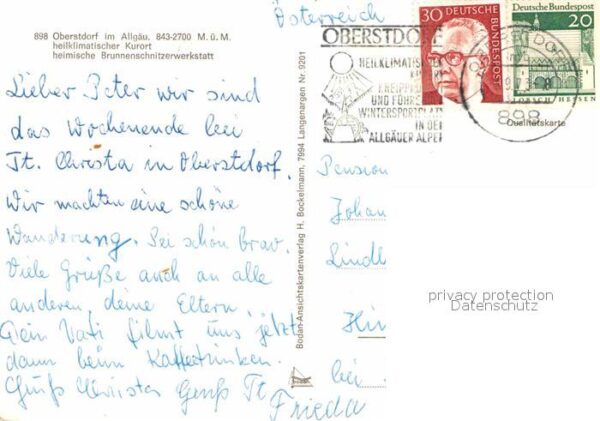 Österreich
898 Oberstdorf im Allgäu, 843-2700 M. ü. M.
heilklimatischer Kurort
heimische Brunnenschnitzerwerkstatt
Lieber Peter wir sind
das Wochenende bei
Tt. Christa in Oberstdorf.
Wir machten eine schöne
Wanderung. Sei schön brav.
Viele Grüße auch an alle
anderen, deine Eltern
Dein Vati filmt uns jetzt
dann beim Kaffeetrinken.
Gruß Christa Gruß Tt.
Frieda
Bodan-Ansichtskartenverlag H. Bockelmann, 7994 Langenargen Nr. 9201
OBERSTDORF
HEILKLIMATISCHER
KNEIPP
UND FÜHR
WINTERSPORTPLATZ
IN DEN
ALLGÄUER ALPEN
30 DEUTSCHE BUNDESPOST
Deutsche Bundespost
20
HESSEN
898
Qualitätskarte
Pension
Johan
Lindl
Hin
bei
privacy protection
Datenschutz